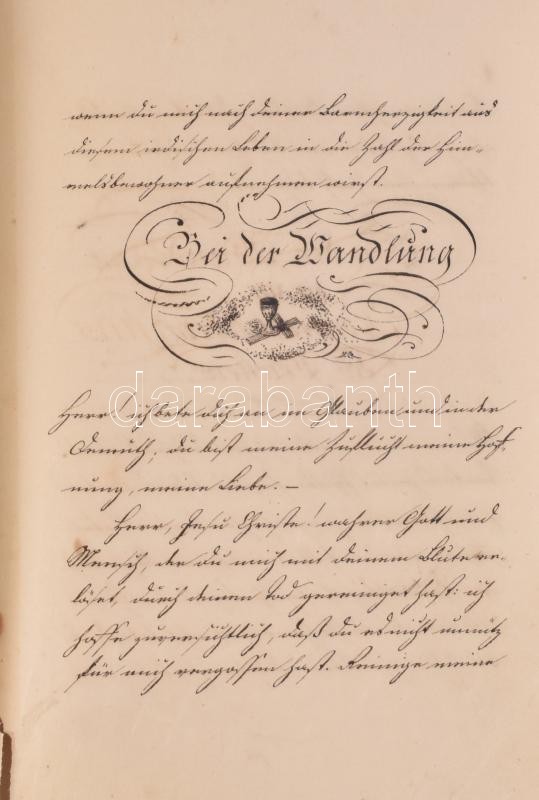 wenn du mich nach deiner Barmherzigkeit aus
diesem irdischen Leben in die Zahl der Him-
melsbewohner aufnehmen wirst.
Bei der Wandlung
darabanth
Herr! ich bete dich an im Glauben und in der
Demuth; du bist meine Zuflucht meine Hoff-
nung, meine Liebe. –
Herr, Jesu Christe! wahrer Gott und
Mensch, der du mich mit deinem Blute er-
löset, durch deinen Tod gereiniget hast: ich
hoffe zuversichtlich, daß du es nicht unnütz
für mich vergossen hast. Reinige meine